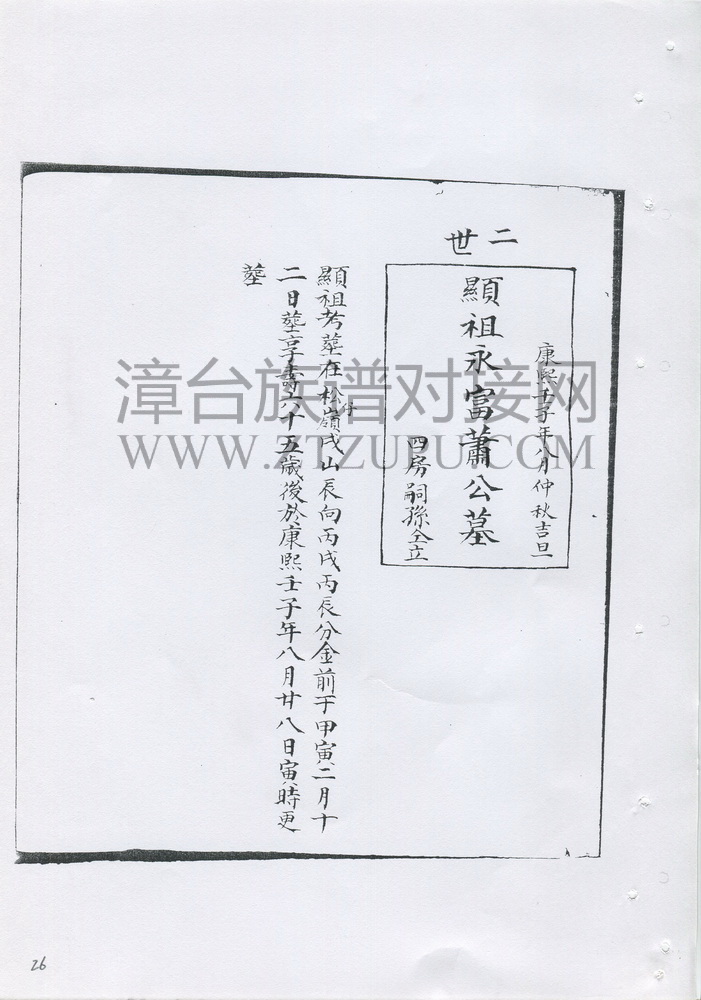 二世
康熙壬子年八月仲秋吉旦
顯祖永富蕭公墓
四房嗣孫仝立
顯祖考塟在松嶺仔戌山辰向丙戌丙辰分金前于甲寅二月十
二日塟享壽六十五歲後於康熙壬子年八月廿八日寅時更
塟
漳台族谱对接网
WWW.ZTZUPU.COM
26